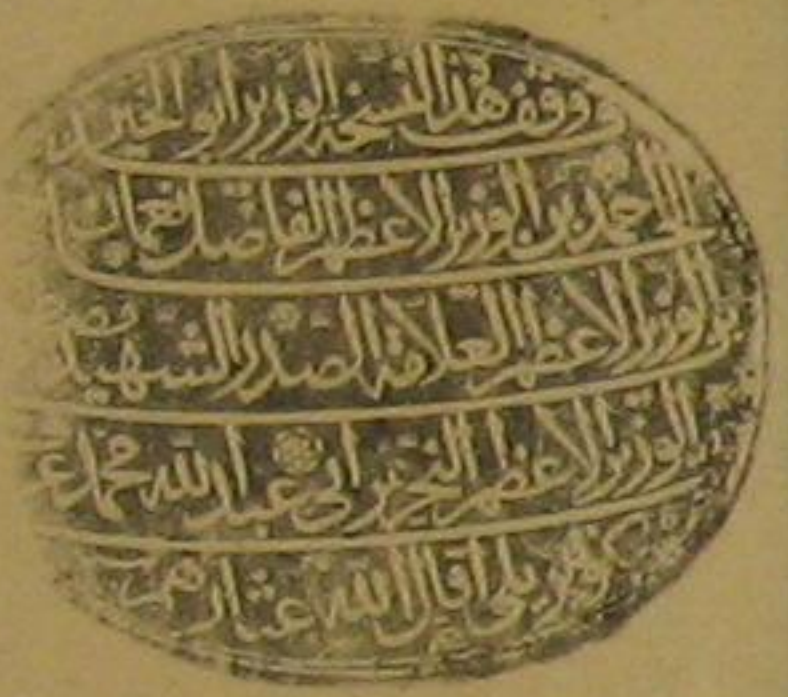 وقف هذا النسخة الوزير ابو الخير
احمد بن الوزير الاعظم الفاضل نعمان
بن الوزير الاعظم العلامة الصدر الشهيد
الوزير الاعظم النحرير ابى عبد الله محمد
كوپريلى اقال الله عثارهم